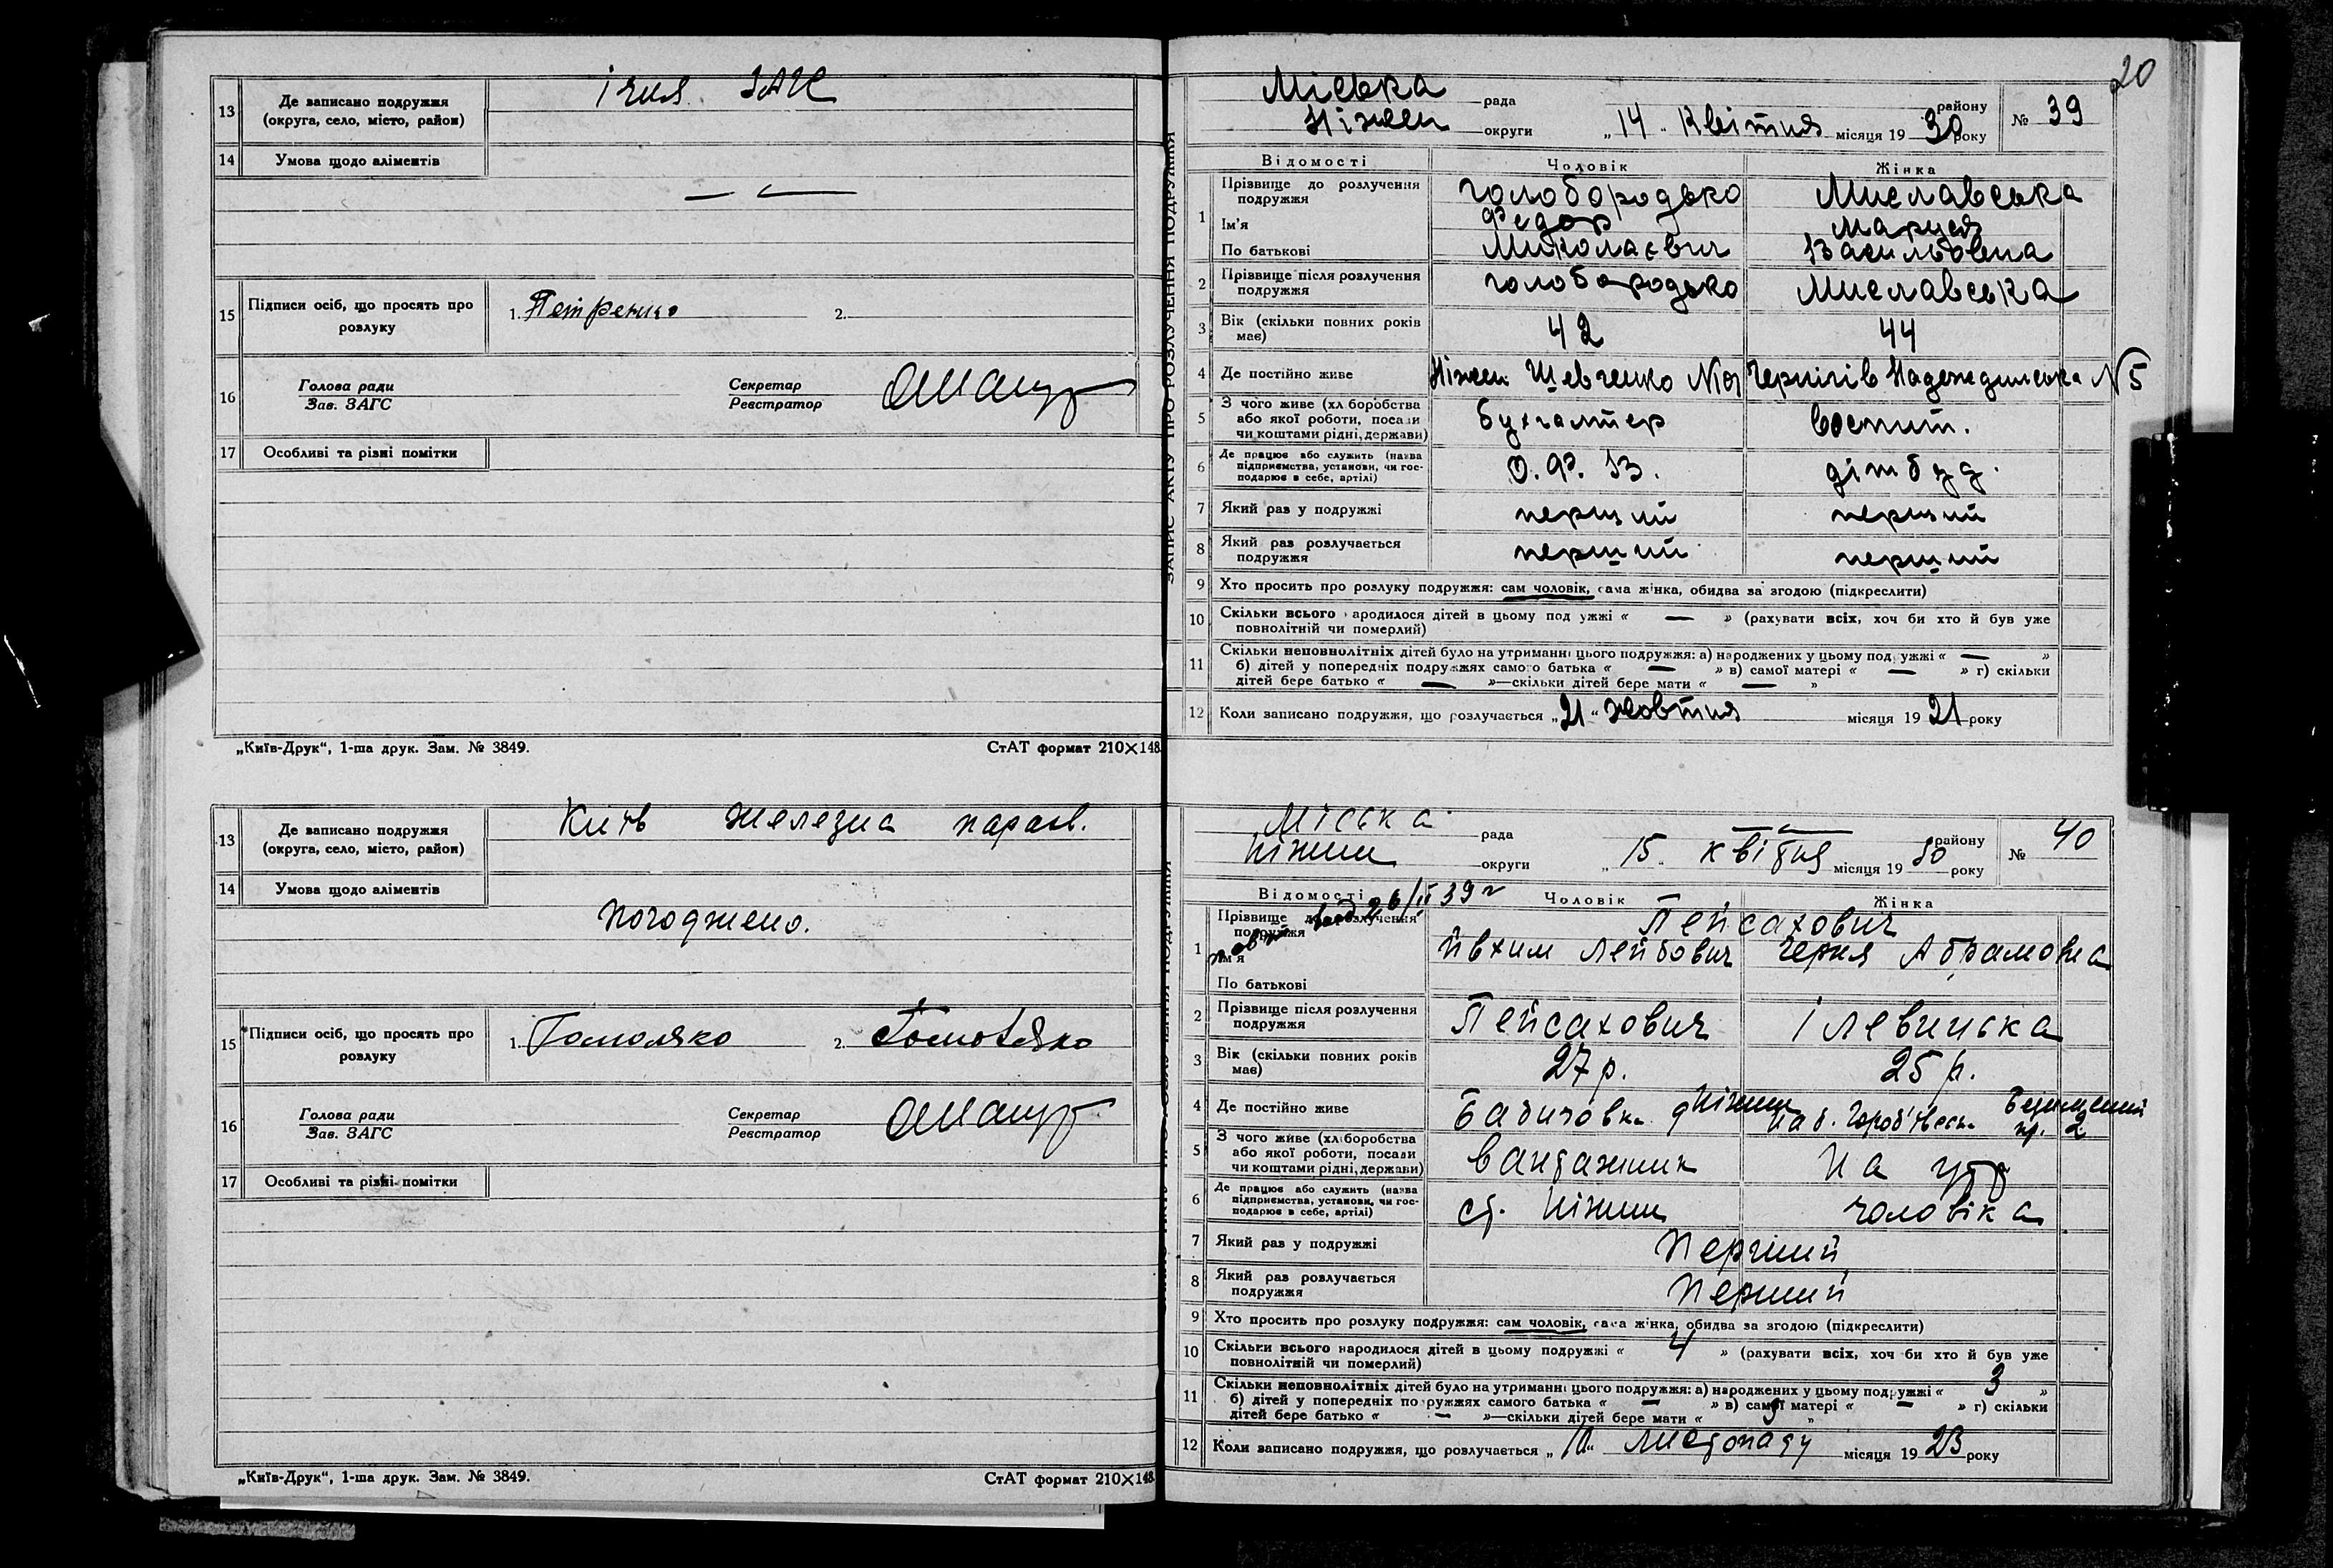 13 Де записано подружжя
(округа, село, місто, район)
Ічня ЗАГС
14 Умова щодо аліментів
— —
15 Підписи осіб, що просять про
розлуку
1. Петренко 2.
16 Голова ради
Зав. ЗАГС
Секретар
Реєстратор
17 Особливі та різні помітки
„Київ-Друк“, 1-ша друк. Зам. № 3849. СтАТ формат 210×148.
13 Де записано подружжя
(округа, село, місто, район)
Київ железна
14 Умова щодо аліментів
Погоджено.
15 Підписи осіб, що просять про
розлуку
1. Гомоляко 2. Гомоляко
16 Голова ради
Зав. ЗАГС
Секретар
Реєстратор
17 Особливі та різні помітки
„Київ-Друк“, 1-ша друк. Зам. № 3849. СтАТ формат 210×148.
20
ЗАПИС АКТУ ПРО РОЗЛУЧЕННЯ ПОДРУЖЖЯ
Міська рада району № 39
Ніжен округи „14“ Квітня місяця 1930 року
Відомості Чоловік Жінка
1 Прізвище до розлучення
подружжя
Голобородько Миславська
Ім'я Федор Маруся
По батькові Миколаєвич Васильовена
2 Прізвище після розлучення
подружжя
Голобородько Миславська
3 Вік (скільки повних років
має)
42 44
4 Де постійно живе Ніжен Шевченко Чернігів Надеждинська N 5
5 З чого живе (хліборобства
або якої роботи, посади
чи коштами рідні, держави)
бухгалтер воспит.
6 Де працює або служить (назва
підприємства, установи, чи гос-
подарює в себе, артілі)
О. Ф. В. дітбуд.
7 Який раз у подружжі перший перший
8 Який раз розлучається
подружжя
перший перший
9 Хто просить про розлуку подружжя: сам чоловік, сама жінка, обидва за згодою (підкреслити)
10 Скільки всього народилося дітей в цьому подружжі « — » (рахувати всіх, хоч би хто й був уже
повнолітній чи померлий)
11 Скільки неповнолітніх дітей було на утриманні цього подружжя: а) народжених у цьому подружжі « — »
б) дітей у попередніх подружжях самого батька « — » в) самої матері « — » г) скільки
дітей бере батько « — »—скільки дітей бере мати « — »
12 Коли записано подружжя, що розлучається „21“ жовтня місяця 1921 року
Міська рада — — району № 40
Ніжин округи „15“ квітня місяця 1930 року
Відомості Чоловік Жінка
26/II 39 г
1 Прізвище до розлучення
подружжя
Пейсахович
Ім'я Йвхим Лейбович Черня Абрамовна
По батькові
2 Прізвище після розлучення
подружжя
Пейсахович Ілевицька
3 Вік (скільки повних років
має)
27 р. 25 р.
4 Де постійно живе Ніжин
2
5 З чого живе (хліборобства
або якої роботи, посади
чи коштами рідні, держави)
вантажник на утр
6 Де працює або служить (назва
підприємства, установи, чи гос-
подарює в себе, артілі)
ст. Ніжин чоловіка
7 Який раз у подружжі Перший
8 Який раз розлучається
подружжя
Перший
9 Хто просить про розлуку подружжя: сам чоловік, сама жінка, обидва за згодою (підкреслити)
10 Скільки всього народилося дітей в цьому подружжі « 4 » (рахувати всіх, хоч би хто й був уже
повнолітній чи померлий)
11 Скільки неповнолітніх дітей було на утриманні цього подружжя: а) народжених у цьому подружжі « 3 »
б) дітей у попередніх подружжях самого батька « — » в) самої матері « — » г) скільки
дітей бере батько « — »—скільки дітей бере мати « 3 »
12 Коли записано подружжя, що розлучається листопаду місяця 1923 року